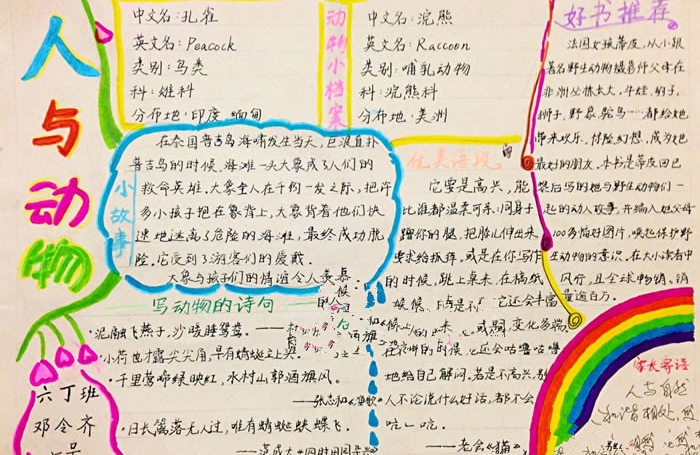 人与动物
中文名:孔雀
英文名:Peacock
类别:鸟类
科:雉科
分布地:印度 缅甸
动物小档案
中文名:浣熊
英文名:Raccoon
类别:哺乳动物
科:浣熊科
分布地:美洲
好书推荐
法国女孩蒂皮,从小跟
着名野生动物摄影师父母在
非洲丛林长大,牛蛙、豹子、
狮子、野象、鸵鸟……都给她
带来欢乐、惊险幻想,成为她
最好的朋友。本书是蒂皮回巴
黎后写的她与野生动物们一
起的动人故事,并编入她父母
100多幅好图片,唤起保护野
生动物的意识。在大小读者中
风行,且全球畅销、销
量逾百万。
小故事
在泰国普吉岛海啸发生当天,巨浪直扑
普吉岛的时候,海滩一头大象成了人们的
救命英雄,大象奎人在千钧一发之际,把许
多小孩子抱在象背上,大象背着他们快
速地逃离了危险的海滩,最终成功脱
险。它受到了游客们的爱戴。
大象与孩子们的情谊令人羡慕
优美语段
它要是高兴,能
比谁都温柔可亲:用身子
蹭你的腿,把脖儿伸出来
要求给抓痒,或是在你写作
的时候,跳上桌来,在稿纸
它还会丰富
变化多端。
在没讲的时候,它还会咕噜咕噜
地给自己解闷。若是不高兴,别
人不论说什么好话,都不会
吭一吭。
——老舍《猫》
写动物的诗句
·泥融飞燕子,沙暖睡鸳鸯。——杜
·小荷才露尖尖角,早有蜻蜓立上头
·千里莺啼绿映红,水村山郭酒旗风。
——张志和《渔歌》
·日长篱落无人过,唯有蜻蜓蛱蝶飞。
——范成大《四时田园
六丁班
邓令齐
家长寄语
人与自然
和谐相处